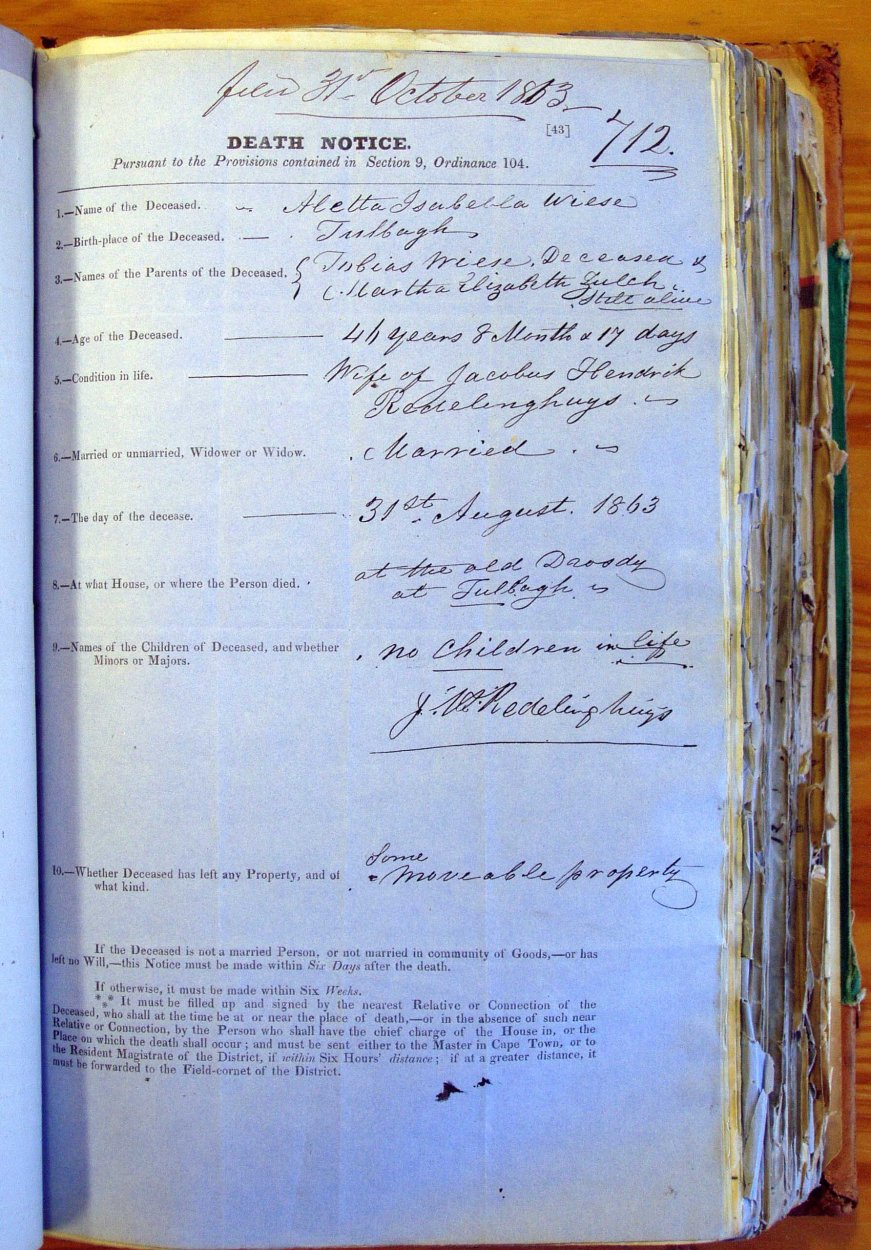 filed 31st October 1863
[43]
712.
DEATH NOTICE.
Pursuant to the Provisions contained in Section 9, Ordinance 104.
1.—Name of the Deceased. Aletta Isabella Wiese
2.—Birth-place of the Deceased. Tulbagh
3.—Names of the Parents of the Deceased. { Tobias Wiese. Deceased &
Martha Elizabeth Zulch.
Still alive
4.—Age of the Deceased. years 8 Month & 17 days
5.—Condition in life. Wife of Jacobus Hendrik
Redelinghuys
6.—Married or unmarried, Widower or Widow. Married
7.—The day of the decease. 31st August. 1863
8.—At what House, or where the Person died. at the old Drosdy
at Tulbagh
9.—Names of the Children of Deceased, and whether
Minors or Majors.
no Children in life
Redelinghuijs
10.—Whether Deceased has left any Property, and of
what kind.
Some
moveable property
If the Deceased is not a married Person, or not married in community of Goods,—or has
left no Will,—this Notice must be made within Six Days after the death.
If otherwise, it must be made within Six Weeks.
*** It must be filled up and signed by the nearest Relative or Connection of the
Deceased, who shall at the time be at or near the place of death,—or in the absence of such near
Relative or Connection, by the Person who shall have the chief charge of the House in, or the
Place on which the death shall occur; and must be sent either to the Master in Cape Town, or to
the Resident Magistrate of the District, if within Six Hours' distance; if at a greater distance, it
must be forwarded to the Field-cornet of the District.